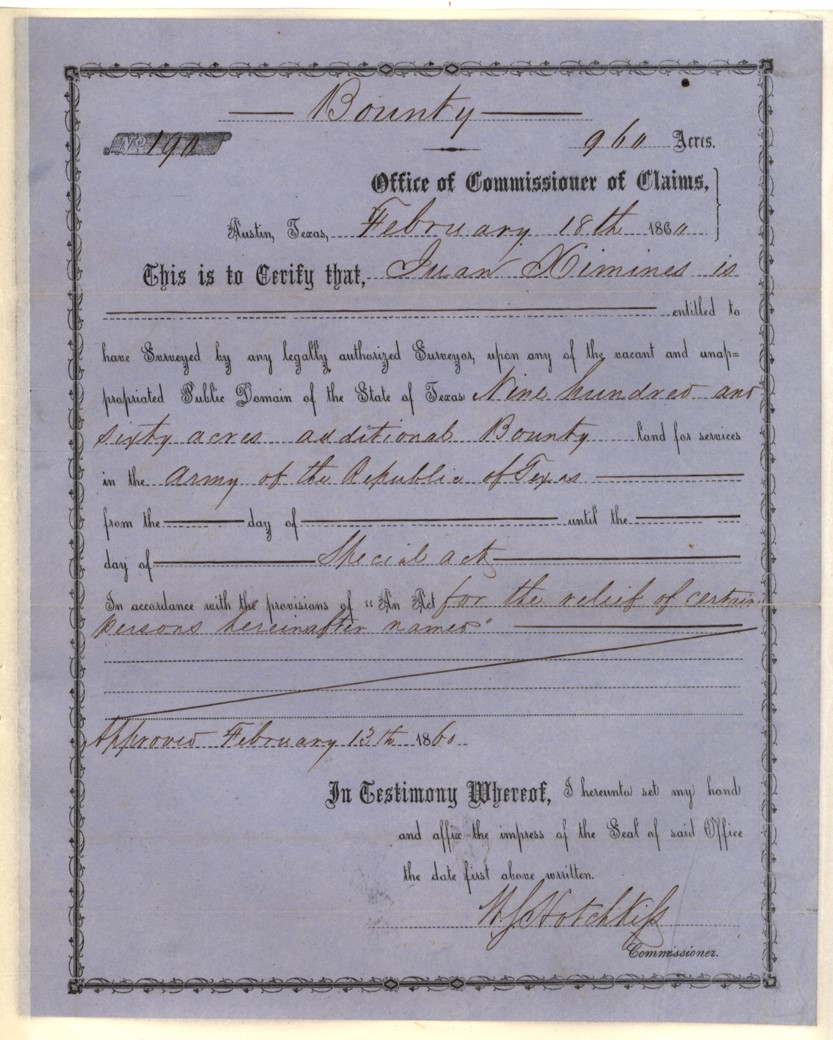 Bounty
No. 190 960 Acres.
Office of Commissioner of Claims,
Austin, Texas, February 18th 1860
This is to Cerify that, Juan Ximines is
entitled to
have Surveyed by any legally authorized Surveyor, upon any of the vacant and unap=
propriated Public Domain of the State of Texas Nine hundred and
sixty acres additional Bounty land for services
in the Army of the Republic of Texas
from the day of until the
day of Special act
In accordance with the provisions of "An Act for the relief of certain
persons hereinafter named"
Approved February 13th 1860
In Testimony Whereof, I hereunto set my hand
and affix the impress of the Seal of said Office
the date first above written.
W S Hotchkiss
Commissioner.